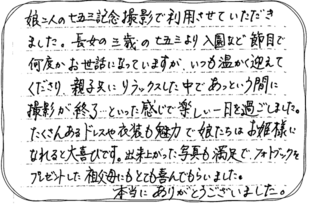 娘二人の七五三記念撮影で利用させていただき
ました。長女の三歳の七五三より入園など節目で
何度かお世話になっていますが、いつも温かく迎えて
くださり、親子共にリラックスした中であっという間に
撮影が終了…といった感じで楽しい一日を過ごしました。
たくさんあるドレスや衣装も魅力で娘たちはお姫様に
なれると大喜びです。出来上がった写真も満足で、フォトブックを
プレゼントした祖父母にもとても喜んでもらいました。
本当にありがとうございました。